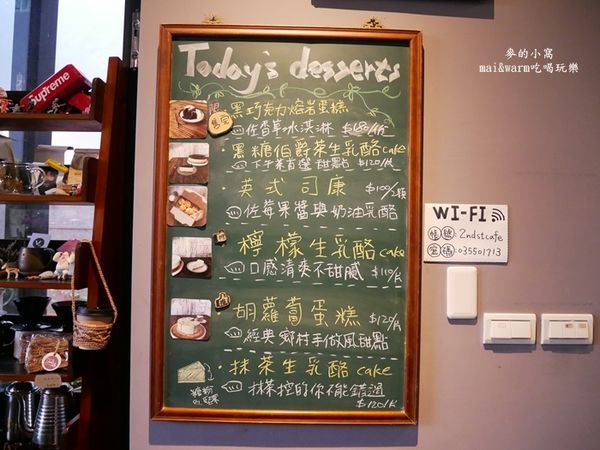 麥的小窩
mai&warm吃喝玩樂
Today's desserts
黑巧克力熔岩蛋糕
售完
佐香草冰淇淋
黑糖伯爵茶生乳酪cake
下午茶首選甜點 $120/片
英式司康 $100/2顆
佐莓果醬與奶油乳酪
檸檬生乳酪cake
口感清爽不甜膩 $110/片
胡蘿蔔蛋糕 $120/片
經典鄉村手做風甜點
抹茶生乳酪cake
抹茶控的你不能錯過
$120/片
Supreme
WI-FI
帳號:2ndstcafe
密碼:035501713